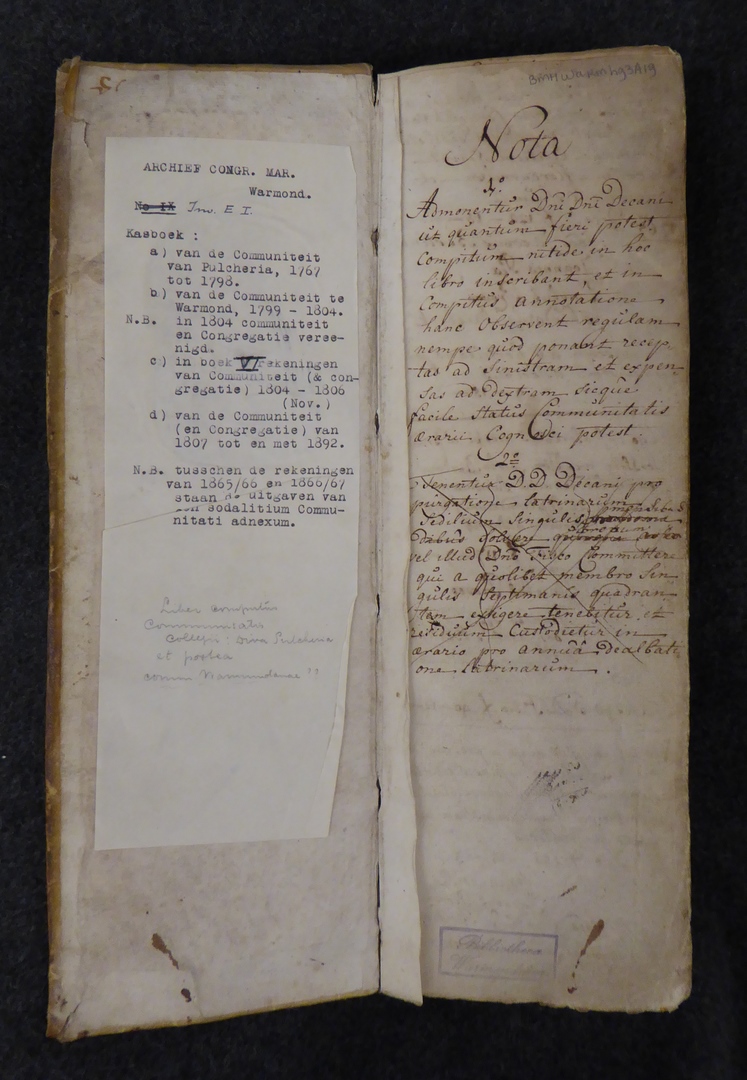 ARCHIEF CONGR. MAR.
Warmond.
No IX Inv. E I.
Kasboek :
a) van de Communiteit
van Pulcheria, 1767
tot 1798.
b) van de Communiteit te
Warmond, 1799 - 1804.
N.B. in 1804 communiteit
en Congregatie veree-
nigd.
c) in boek VI rekeningen
van Communiteit (& con-
gregatie) 1804 - 1806
(Nov.)
d) van de Communiteit
(en Congregatie) van
1807 tot en met 1892.
N.B. tusschen de rekeningen
van 1865/66 en 1866/67
staan de uitgaven van
een sodalitium Commu-
nitati adnexum.
Liber computus
Communitatis
Collegii Divae Pulcheriae
et postea
Warmundanae
BMH Warm h93A19
Nota
1º
Admonentur Dni Dni Decani
ut quantum fieri potest
Computum nitide in hoc
libro inscribant, et in
Computus annotatione
hanc observent regulam
nempe quod ponant recep-
tas ad sinistram et expen-
sas ad dextram sicque
facile status Communitatis
ærarii Cognosci potest.
2º
Tenentur D.D. Decani pro
purgatione latrinarum
sedilium singulis
dabus solvere
vel illud Dno Committere
qui a quolibet membro sin-
gulis septimanis quadran
tem exigere tenebitur et
residuum Custodietur in
ærario pro annuâ dealbati
one latrinarum.
Bibliotheca